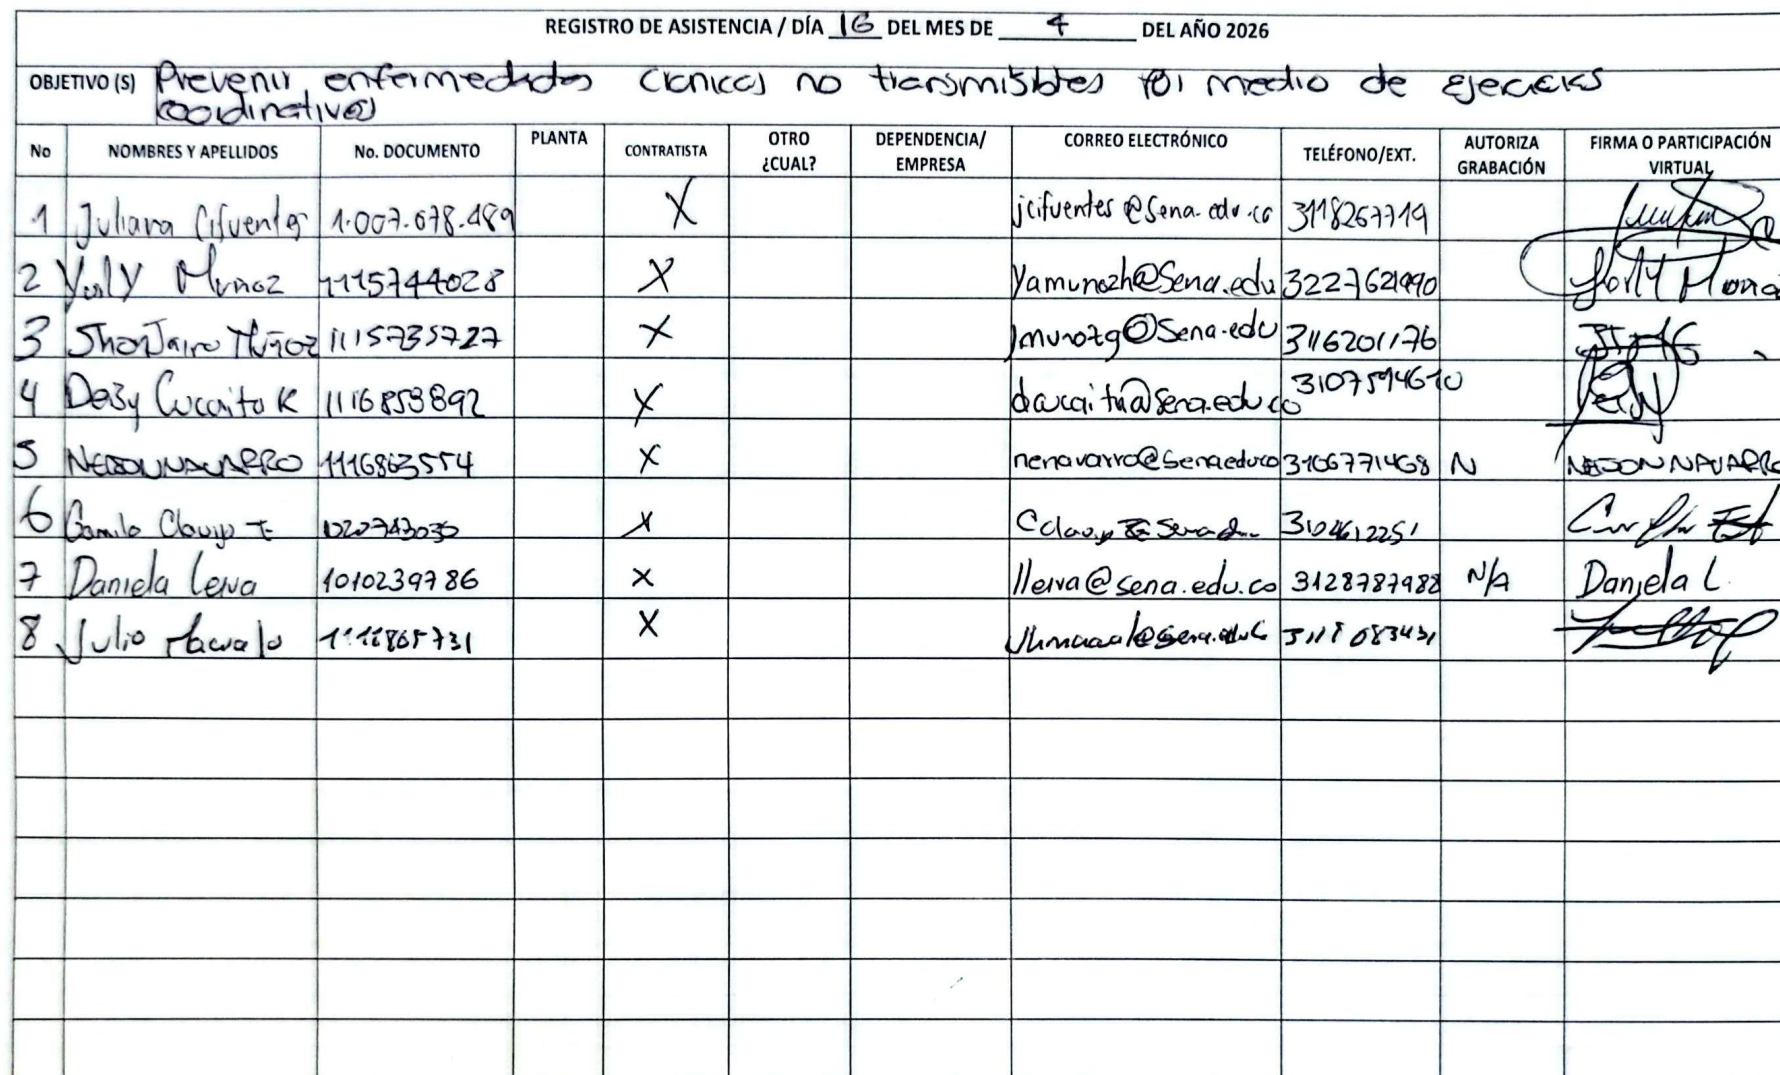 REGISTRO DE ASISTENCIA / DÍA 16 DEL MES DE 4 DEL AÑO 2026
OBJETIVO (S) Prevenir enfermedades cronicas no transmisibles por medio de ejercicios
coordinativos
No NOMBRES Y APELLIDOS No. DOCUMENTO PLANTA CONTRATISTA OTRO ¿CUAL? DEPENDENCIA/ EMPRESA CORREO ELECTRÓNICO TELÉFONO/EXT. AUTORIZA GRABACIÓN FIRMA O PARTICIPACIÓN VIRTUAL
1 Juliana Cifuentes 1.007.678.489 X jcifuentes@sena.edu.co 3118267719
2 Yorly Muñoz 1115744028 X yamunozh@sena.edu Yorly
3 Jhon Jairo Muñoz 1115735727 X jmunozg@sena.edu 3116201176
4 Deisy Cucaita K 1116853892 X 3107594610
5 NELSON NAVARRO 1116863554 X nenavarro@senaeduco 3106771468 N NELSON NAVARRO
6 Camilo Clavijo T 1020743035 X 3104612251
7 Daniela Leiva 1010239786 X lleiva@sena.edu.co 3128787988 N/A Daniela L.
8 Julio X